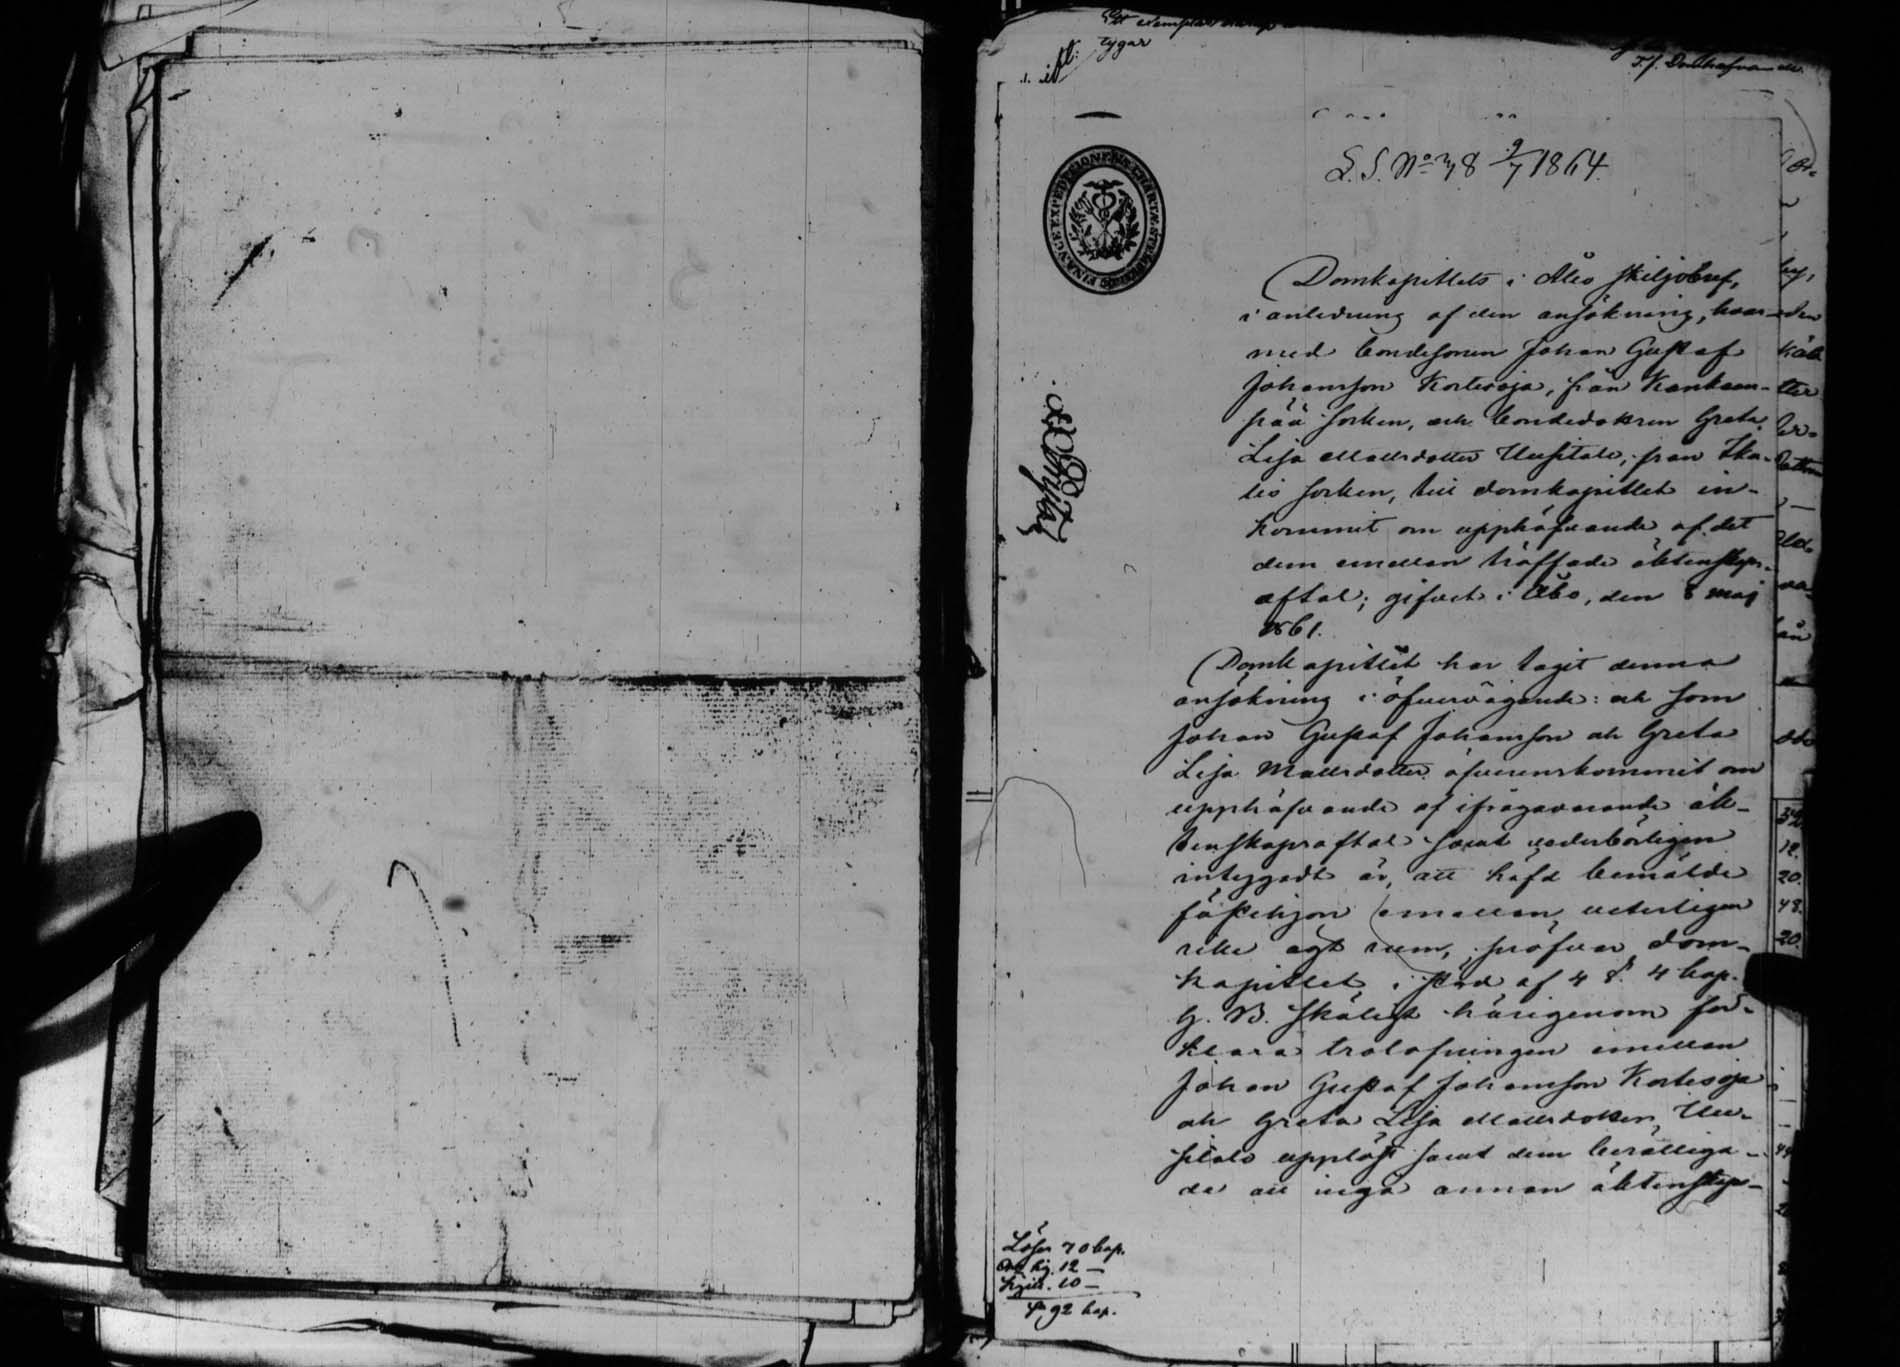 tygar
L. S. No 38 9/7 1864.
Domkapitlets i Åbo skiljobref,
i anledning af den ansökning, hvar-
med bondesonen Johan Gustaf
Johansson Kortesoja, från Kankaan-
pää socken, och bondedottren Greta
Lisa Mattsdotter Uusitalo, från Ika-
lis socken, till domkapitlet in-
kommit om upphäfvande af det
dem emellan träffade äktenskaps-
aftal; gifvet i Åbo, den 8 maj
1861.
Domkapitlet har tagit denna
ansökning i öfvervägande: och som
Johan Gustaf Johansson och Greta
Lisa Mattsdotter öfverenskommit om
upphäfvande af ifrågavarande äk-
tenskapsaftal samt vederbörligen
intygadt är, att häfd bemälde
fästehjon emellan veterligen
icke ägt rum, pröfvar dom-
kapitlet, i stöd af 4 §. 4 kap.
G. B. skäligt härigenom för-
klara trolofningen emellan
Johan Gustaf Johansson Kortesoja
och Greta Lisa Mattsdotter Uu-
sitalo upplöst samt dem berättiga-
de att ingå annan äktenskaps-
Lösen 70 kop.
12 —
10 —
92 kop.